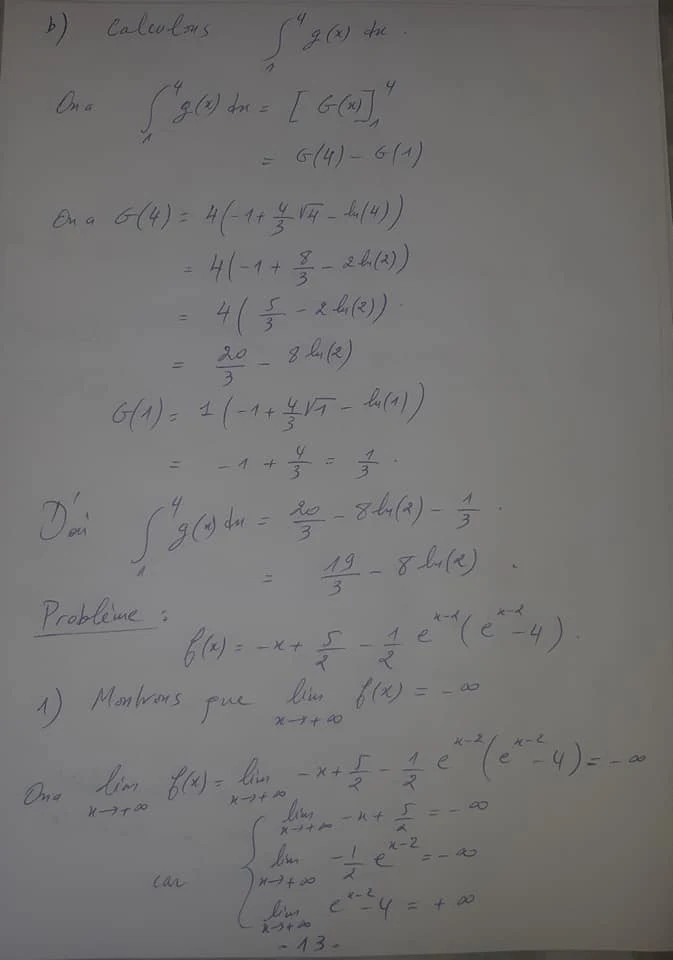 b) Calculons ∫₁⁴ g(x) dx.
On a ∫₁⁴ g(x) dx = [G(x)]₁⁴
= G(4) - G(1)
On a G(4) = 4(-1 + 4/3 √4 - ln(4))
= 4(-1 + 8/3 - 2ln(2))
= 4(5/3 - 2ln(2)).
= 20/3 - 8ln(2)
G(1) = 1(-1 + 4/3 √1 - ln(1))
= -1 + 4/3 = 1/3.
D'où ∫₁⁴ g(x) dx = 20/3 - 8ln(2) - 1/3.
= 19/3 - 8ln(2).
Problème :
f(x) = -x + 5/2 - 1/2 e^(x-2) (e^(x-2) - 4).
1) Montrons que lim x→+∞ f(x) = -∞
On a lim x→+∞ f(x) = lim x→+∞ -x + 5/2 - 1/2 e^(x-2) (e^(x-2) - 4) = -∞
car { lim x→+∞ -x + 5/2 = -∞
lim x→+∞ -1/2 e^(x-2) = -∞
lim x→+∞ e^(x-2) - 4 = +∞
- 13 -